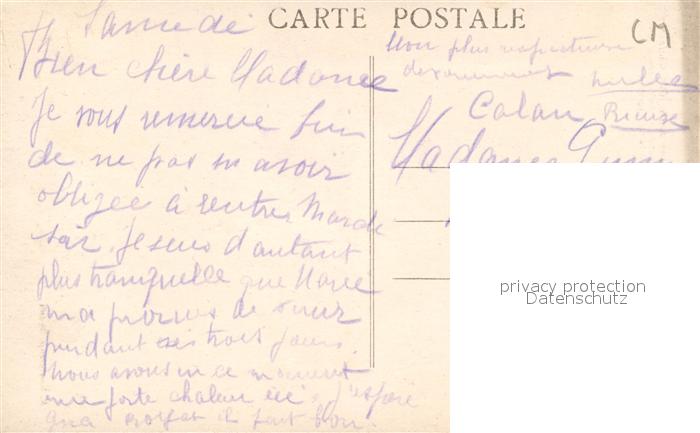 CARTE POSTALE
CM
Samedi
Bien chère Madame
Je vous remercie bien
de ne pas m avoir
obligée à rentrer Mardi
soir. Je suis d autant
plus tranquille que Marie
m a promis de venir
pendant ces trois jours.
Nous avons en ce moment
une forte chaleur ici, j'espère
qu'a il fait bon.
Mon plus respectueux
Calan
Madame
privacy protection
Datenschutz